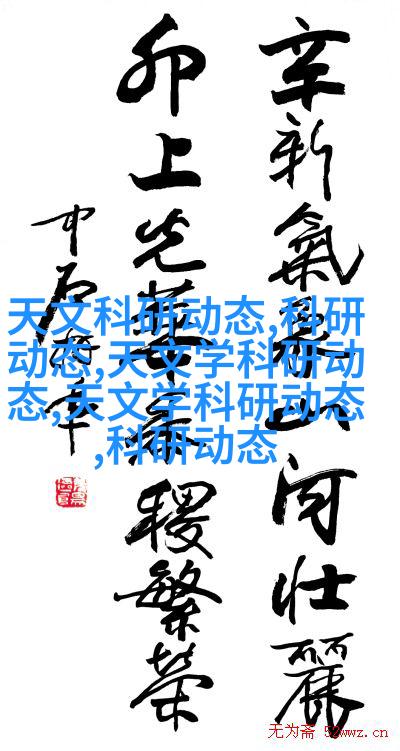 辛新氣象山河壮麗
卯上光華社稷繁榮
中石
天文科研动态,科研
动态,天文学科研动
态,天文学科研动态
,科研动态
无为斋 52wwz.cn